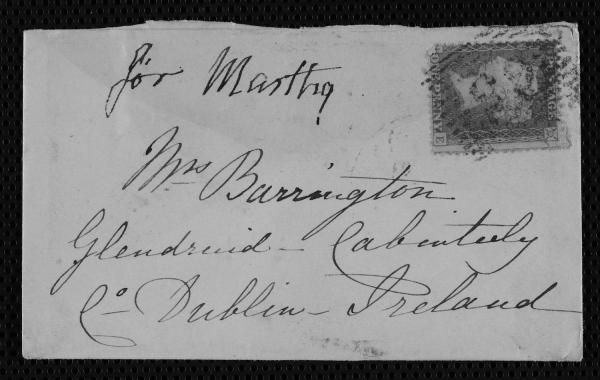 for Martha
Mrs Barrington
Glendruid - Cabinteely
Co - Dublin - Ireland
ONE PENNY
E